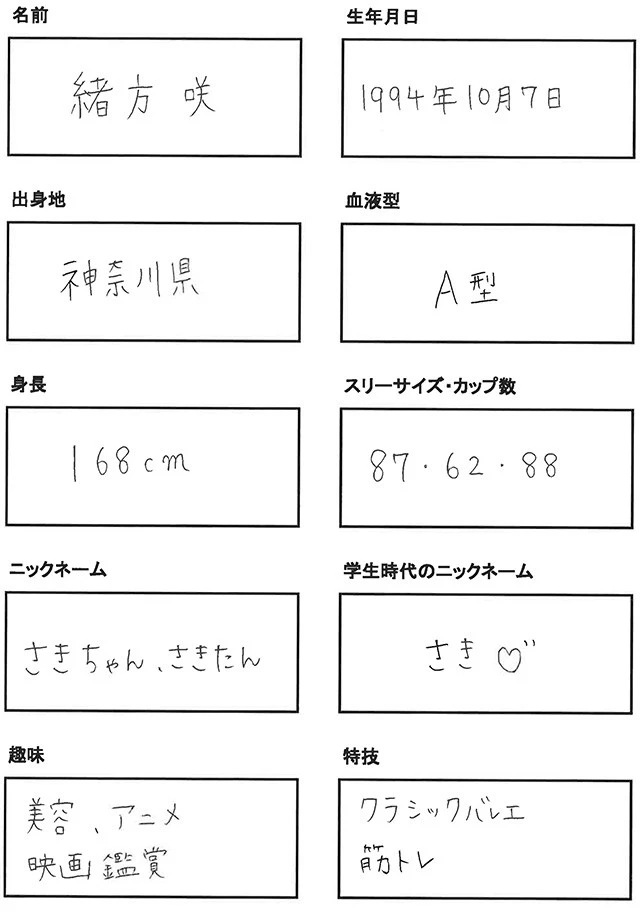 名前
緒方 咲
生年月日
1994年10月7日
出身地
神奈川県
血液型
A型
身長
168cm
スリーサイズ・カップ数
87・62・88
ニックネーム
さきちゃん、さきたん
学生時代のニックネーム
さき♡”
趣味
美容、アニメ
映画鑑賞
特技
クラシックバレエ
筋トレ